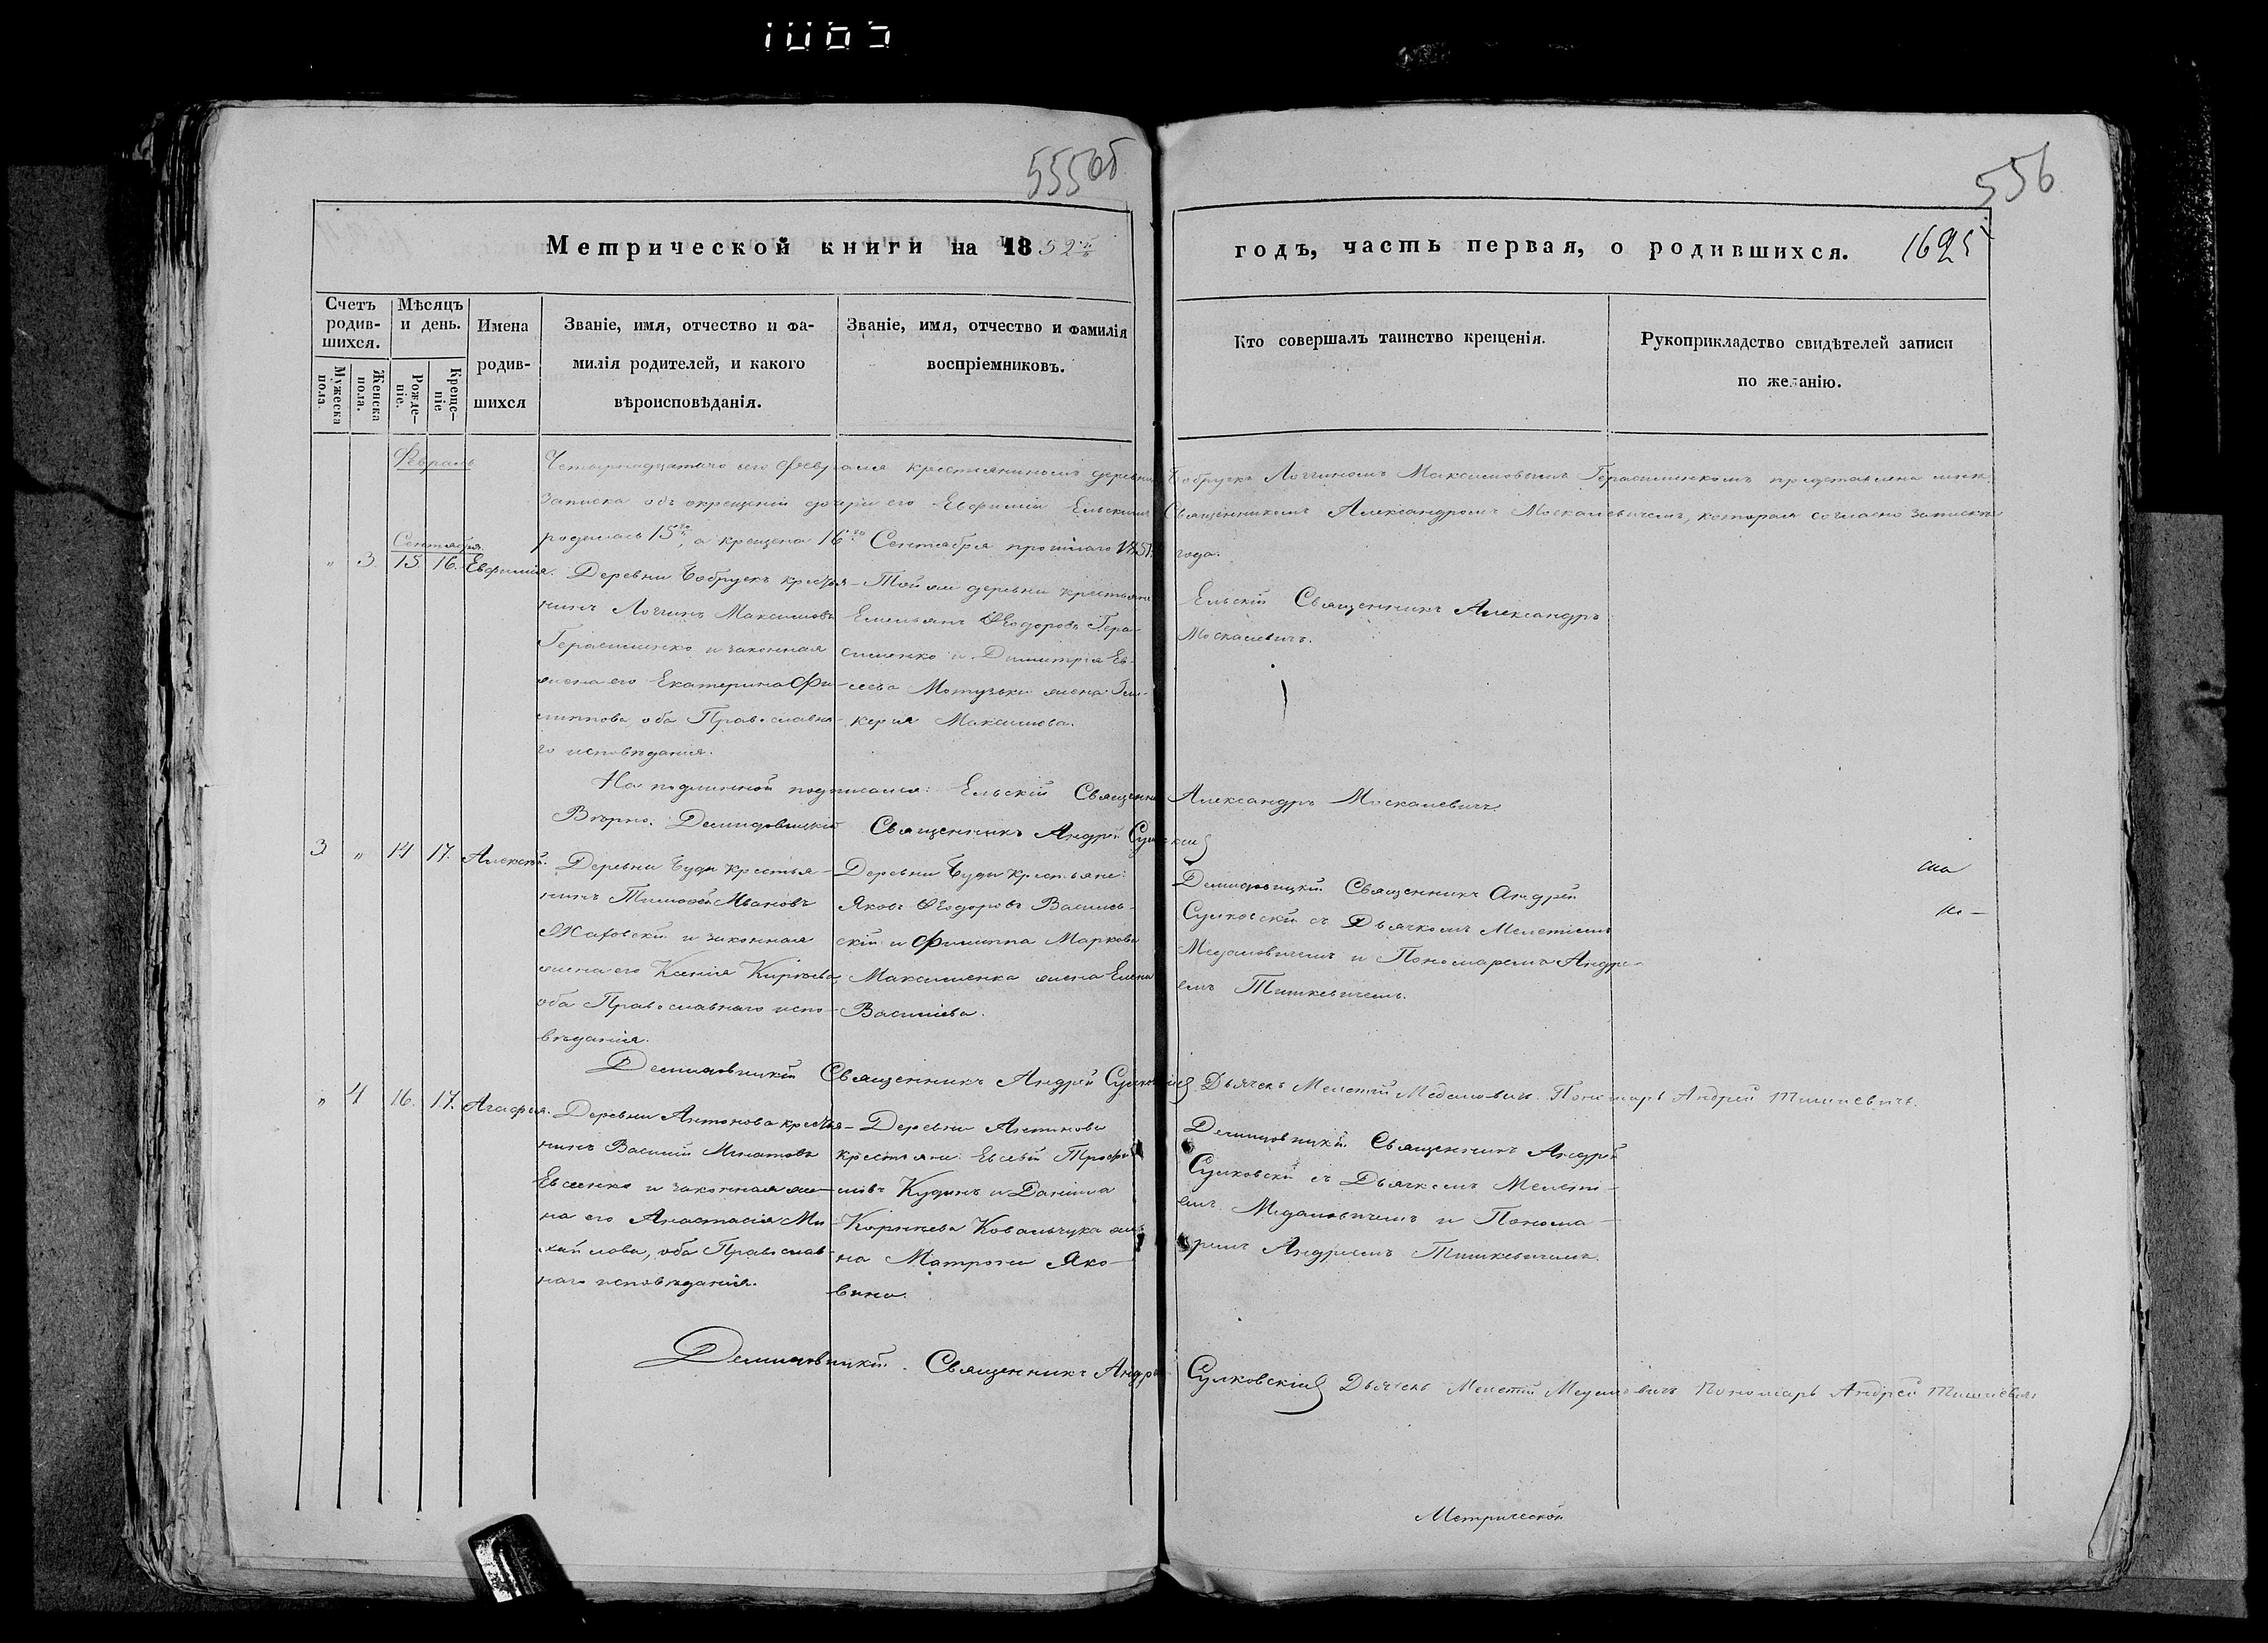 1065
555об
556
Метрической книги на 1852й
годъ, часть первая, о родившихся.
1695
Счетъ родив-шихся.
Мужеска пола.
Женска пола.
Мѣсяцъ и день.
Рожде-ніе.
Креще-ніе
Имена родив-шихся
Званіе, имя, отчество и фа-
милія родителей, и какого
вѣроисповѣданія.
Званіе, имя, отчество и фамилія
воспріемниковъ.
Кто совершалъ таинство крещенія.
Рукоприкладство свидѣтелей записи
по желанію.
Февраль
Четырнадцатаго сего февраля крестьяниномъ деревни Бобрускъ Логгиномъ Максимовымъ Герасименкомъ представлена мнѣ
Записка объ окрещеніи дочери его Евфиміи Ельскимъ Священникомъ Александромъ Москалевичемъ, которая согласно Записки
родилась 15го, а крещена 16го Сентября прошлаго 1851 года.
Сентября
" 3. 15 16. Евфимія.
Деревни Бобрускъ крестья-
нинъ Логгинъ Максимовъ
Герасименко и законная
жена его Екатерина Фи-
липпова оба Православна-
го исповѣданія.
Той же деревни крестьяне
Емельянъ Ѳеодоровъ Гера-
сименко и Димитрія Ев-
сеева Мотузки жена Гли-
керія Максимова.
Ельскій Священникъ Александръ
Москалевичъ.
На подлинной подписался: Ельскій Священникъ Александръ Москалевичъ
Вѣрно: Демидовицкій Священникъ Андрей Сулковскій
3 " 14 17. Алексѣй.
Деревни Буды крестья-
нинъ Тимофей Ивановъ
и законная
жена его Ксенія Кирѣева
оба Православнаго испо-
вѣданія.
Деревни Буды крестьяне:
Яковъ Ѳеодоровъ Василев-
скій и Филиппа Маркова
Максименка жена Елена
Василіева.
Демидовицкій Священникъ Андрей
Сулковскій съ Дьячкомъ Мелетіемъ
Медаловичемъ и Пономаремъ Андре-
емъ Тишкевичемъ.
Демидовицкій Священникъ Андрей Сулковскій Дьячекъ Мелетій Медаловичъ Пономарь Андрей Тишкевичъ.
" 4 16. 17. Агафія.
Деревни Антонова крестья-
нинъ Василій Игнатовъ
Евсеенко и законная же-
на его Анастасія Ми-
хайлова, оба Православ-
наго исповѣданія.
Деревни Антонова
крестьяне: Евсевій Трофи-
мовъ Кудинъ и Даніила
Корнѣева Ковальчука же-
на Матрона Яко-
влева.
Демидовицкій Священникъ Андрей
Сулковскій съ Дьячкомъ Мелеті-
емъ Медаловичемъ и Понома-
ремъ Андреемъ Тишкевичемъ.
Демидовицкій Священникъ Андрей Сулковскій Дьячекъ Мелетій Медаловичъ Пономарь Андрей Тишкевичъ
Метрической